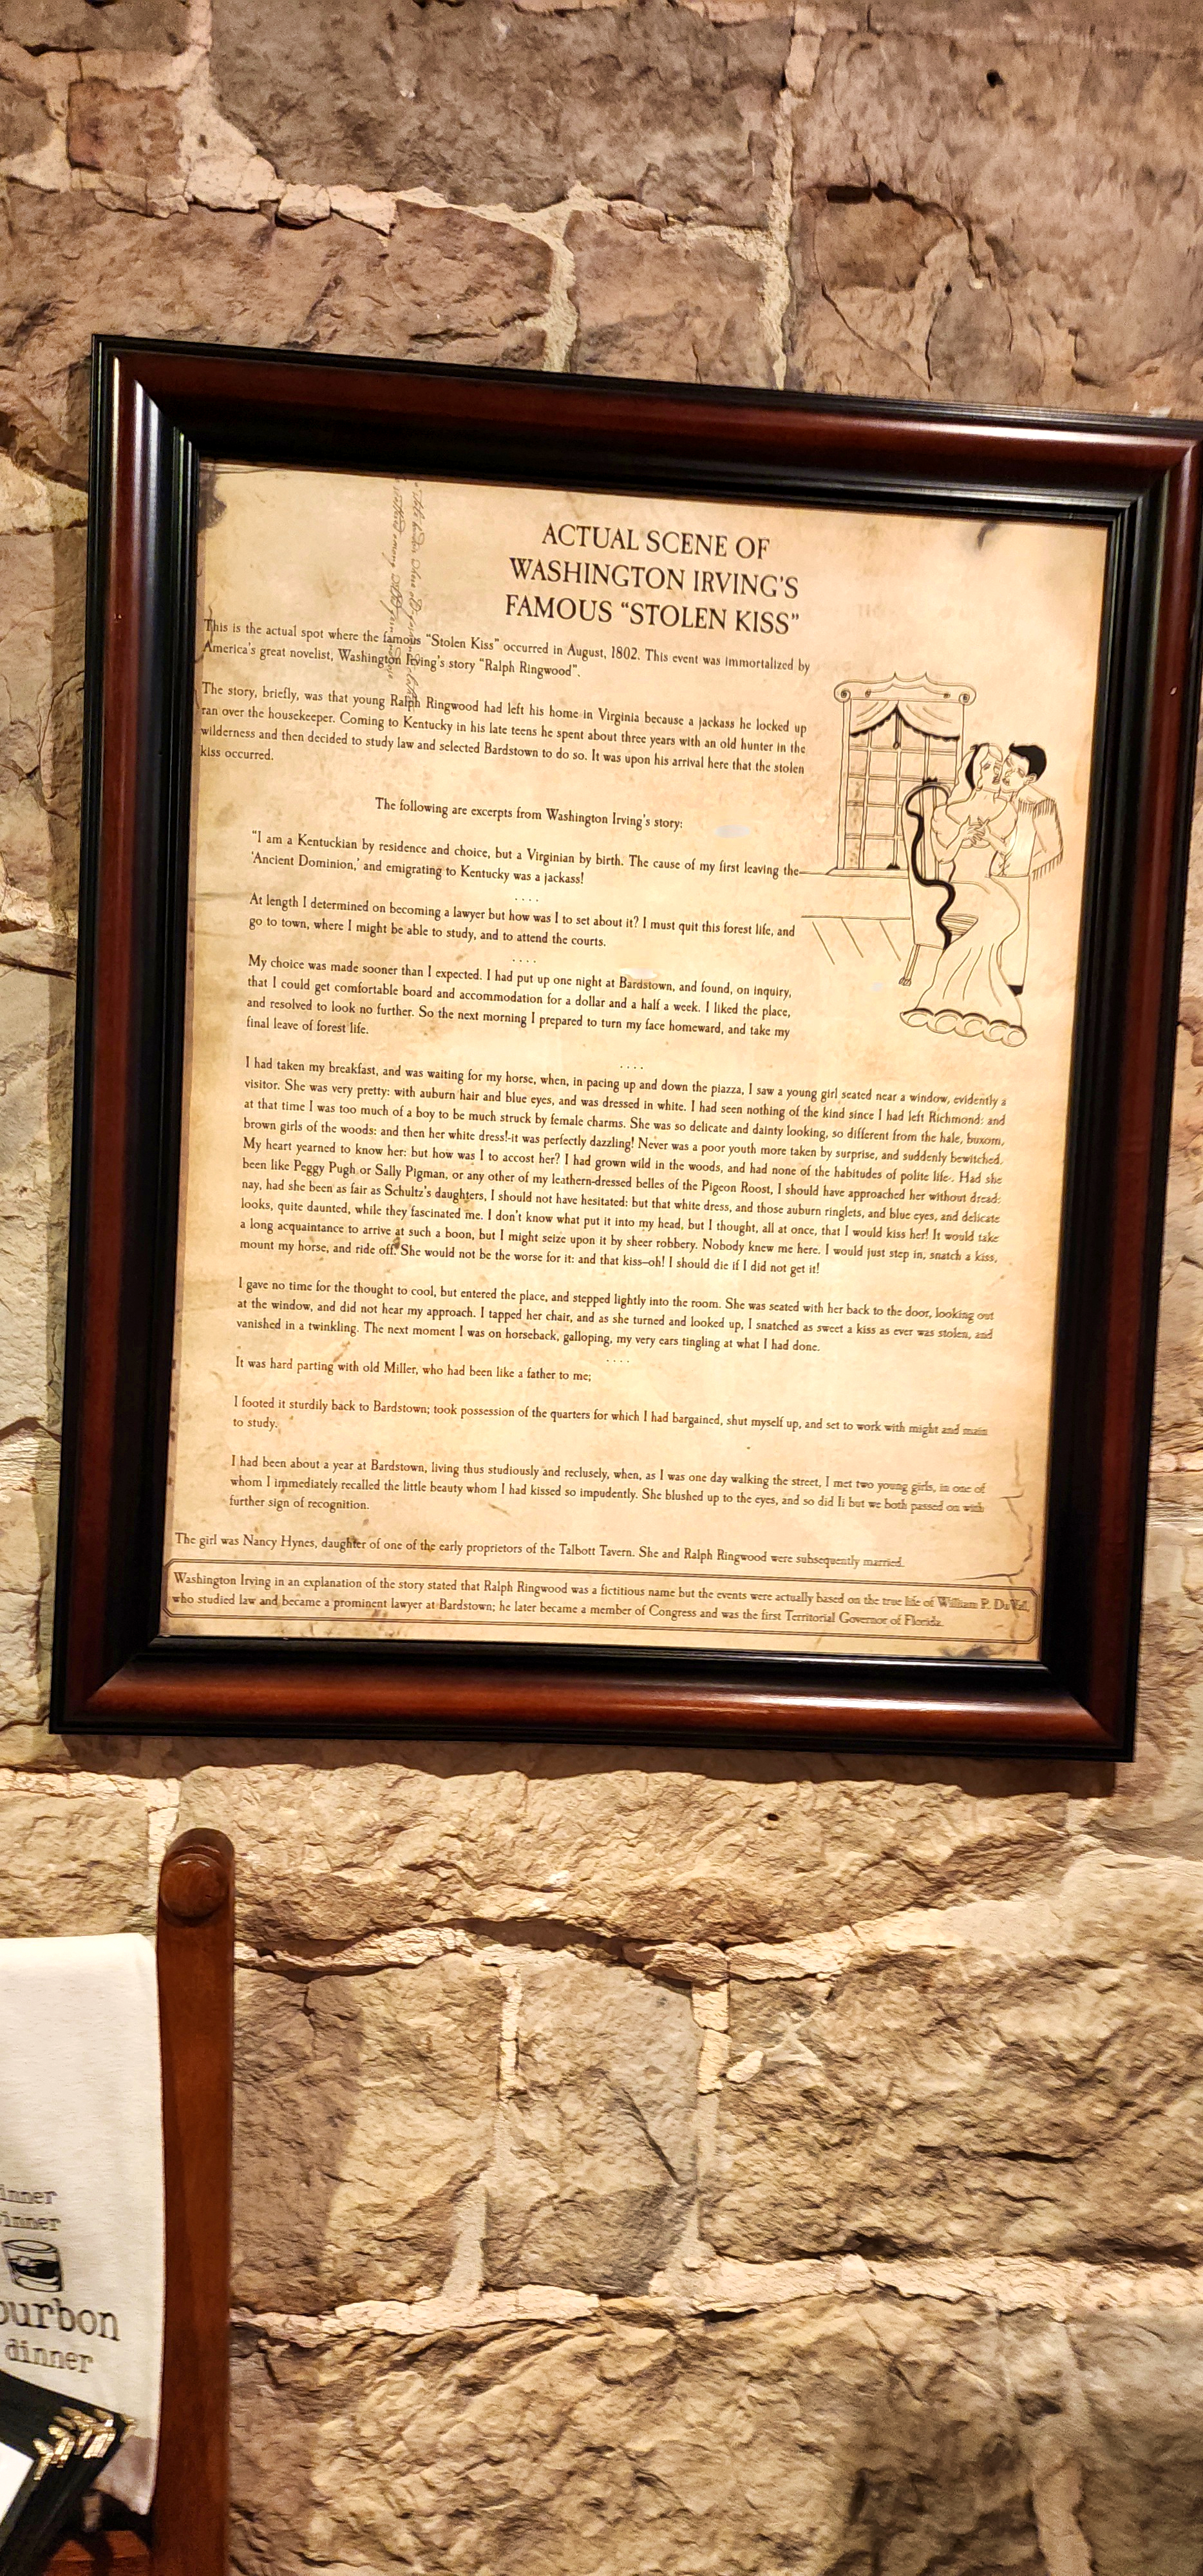 ACTUAL SCENE OF
WASHINGTON IRVING'S
FAMOUS “STOLEN KISS”
This is the actual spot where the famous “Stolen Kiss” occurred in August, 1802. This event was immortalized by
America's great novelist, Washington Irving's story "Ralph Ringwood".
The story, briefly, was that young Ralph Ringwood had left his home in Virginia because a jackass he locked up
ran over the housekeeper. Coming to Kentucky in his late teens he spent about three years with an old hunter in the
wilderness and then decided to study law and selected Bardstown to do so. It was upon his arrival here that the stolen
kiss occurred.
The following are excerpts from Washington Irving's story:
"I am a Kentuckian by residence and choice, but a Virginian by birth. The cause of my first leaving the
'Ancient Dominion,' and emigrating to Kentucky was a jackass!
. . . .
At length I determined on becoming a lawyer but how was I to set about it? I must quit this forest life, and
go to town, where I might be able to study, and to attend the courts.
. . . .
My choice was made sooner than I expected. I had put up one night at Bardstown, and found, on inquiry,
that I could get comfortable board and accommodation for a dollar and a half a week. I liked the place,
and resolved to look no further. So the next morning I prepared to turn my face homeward, and take my
final leave of forest life.
. . . .
I had taken my breakfast, and was waiting for my horse, when, in pacing up and down the piazza, I saw a young girl seated near a window, evidently a
visitor. She was very pretty: with auburn hair and blue eyes, and was dressed in white. I had seen nothing of the kind since I had left Richmond: and
at that time I was too much of a boy to be much struck by female charms. She was so delicate and dainty looking, so different from the hale, buxom,
brown girls of the woods: and then her white dress!-it was perfectly dazzling! Never was a poor youth more taken by surprise, and suddenly bewitched.
My heart yearned to know her: but how was I to accost her? I had grown wild in the woods, and had none of the habitudes of polite life. Had she
been like Peggy Pugh or Sally Pigman, or any other of my leathern-dressed belles of the Pigeon Roost, I should have approached her without dread:
nay, had she been as fair as Schultz's daughters, I should not have hesitated: but that white dress, and those auburn ringlets, and blue eyes, and delicate
looks, quite daunted, while they fascinated me. I don't know what put it into my head, but I thought, all at once, that I would kiss her! It would take
a long acquaintance to arrive at such a boon, but I might seize upon it by sheer robbery. Nobody knew me here. I would just step in, snatch a kiss,
mount my horse, and ride off. She would not be the worse for it: and that kiss--oh! I should die if I did not get it!
I gave no time for the thought to cool, but entered the place, and stepped lightly into the room. She was seated with her back to the door, looking out
at the window, and did not hear my approach. I tapped her chair, and as she turned and looked up, I snatched as sweet a kiss as ever was stolen, and
vanished in a twinkling. The next moment I was on horseback, galloping, my very ears tingling at what I had done.
. . . .
It was hard parting with old Miller, who had been like a father to me;
I footed it sturdily back to Bardstown; took possession of the quarters for which I had bargained, shut myself up, and set to work with might and main
to study.
I had been about a year at Bardstown, living thus studiously and reclusely, when, as I was one day walking the street, I met two young girls, in one of
whom I immediately recalled the little beauty whom I had kissed so impudently. She blushed up to the eyes, and so did Ii but we both passed on with
further sign of recognition.
The girl was Nancy Hynes, daughter of one of the early proprietors of the Talbott Tavern. She and Ralph Ringwood were subsequently married.
Washington Irving in an explanation of the story stated that Ralph Ringwood was a fictitious name but the events were actually based on the true life of William P. DuVall,
who studied law and became a prominent lawyer at Bardstown; he later became a member of Congress and was the first Territorial Governor of Florida.
inner
inner
ourbon
dinner